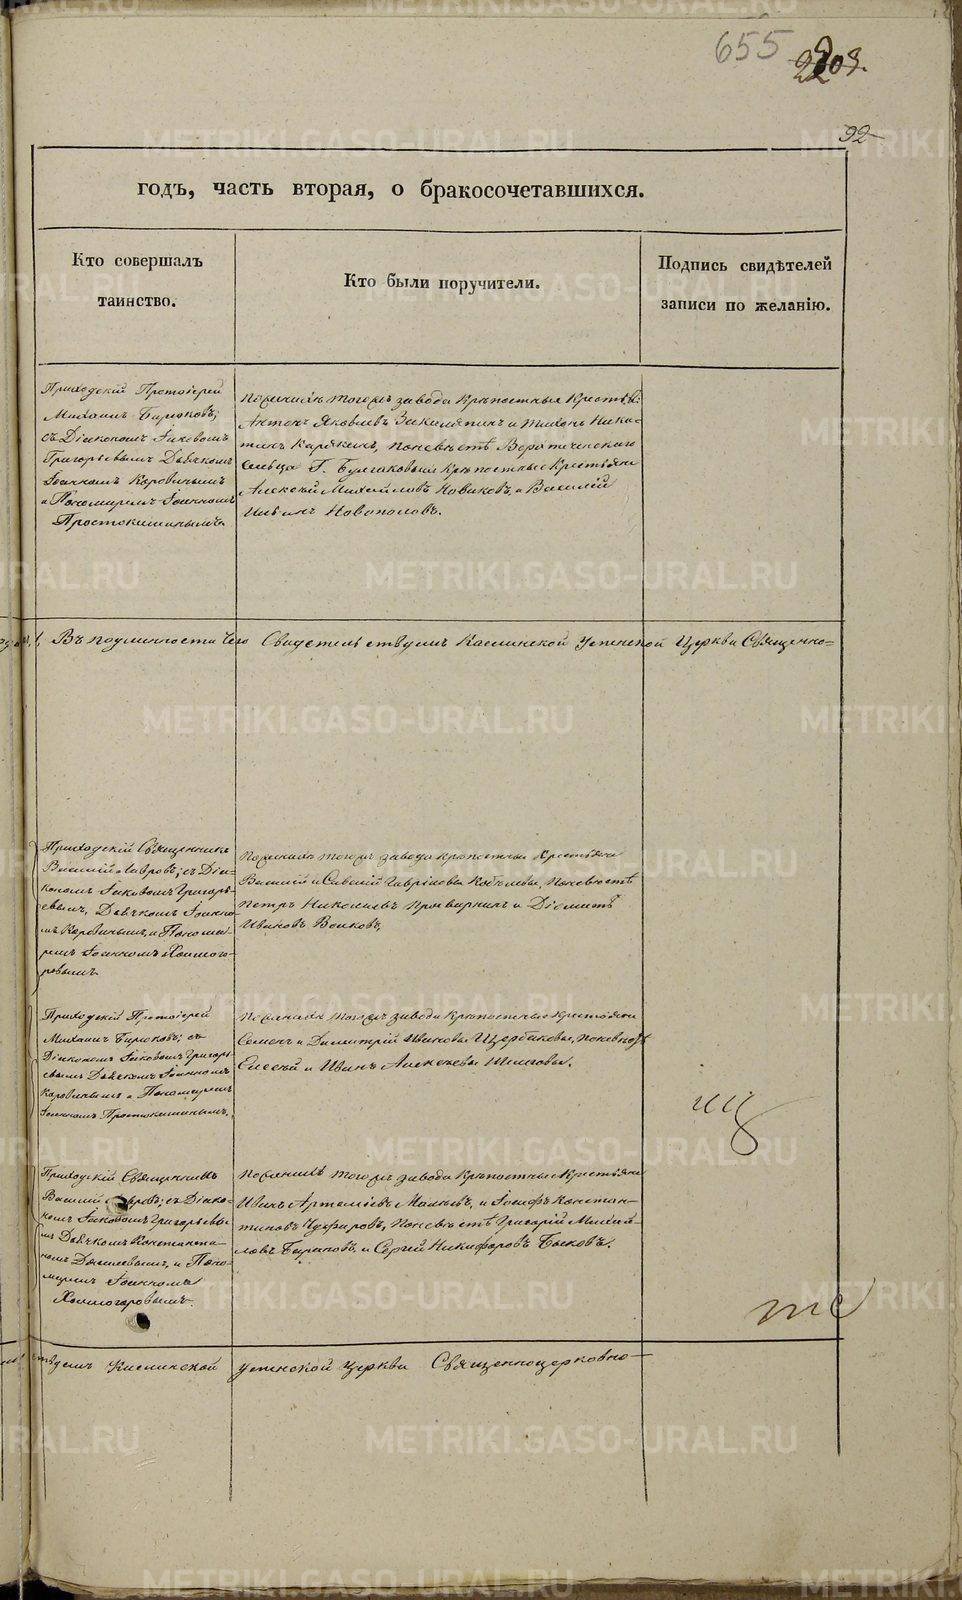 655
92
годъ, часть вторая, о бракосочетавшихся.
Кто совершалъ
таинство.
Кто были поручители.
Подпись свидѣтелей
записи по желанію.
Приходскій Протоіерей
Михаилъ Бирюковъ;
съ Діакономъ Іаковомъ
Григорьевымъ Дьячкомъ
Іоанномъ Коровинымъ
и Пономаремъ Іоанномъ
Простокишинымъ.
По женихѣ тогожъ завода крѣпостные крестья:
Антонъ Яковлевъ и Тихонъ Ники-
тинъ Карякинъ, поневѣстѣ
сельца Г. Булгаковыхъ крѣпостные крестьяне
Алексѣй Михайловъ Новиковъ, и Василій
Новополовъ.
Въ подлинности чего Свидетельствуемъ Каслинской Успенской Церкви Священно-
Приходскій Священникъ
Василій Лавровъ; съ Діа-
кономъ Іаковомъ Григорь-
евымъ, Дьячкомъ Іоанно-
мъ Коровинымъ, и Понома-
ремъ Іоанномъ Холмого-
ровымъ
По женихѣ тогожъ завода крѣпостные крестьяне
Василій и Савелій Гавриловы Кобелевы, поневѣстѣ
Петръ Николаевъ и
Ивановъ Волковъ,
Приходскій Протоіерей
Михаилъ Бирюковъ; съ
Діакономъ Іаковомъ Григорь-
евымъ Дьячкомъ Іоанномъ
Коровинымъ и Пономаремъ
Іоанномъ Простокишинымъ.
По женихѣ тогожъ завода крѣпостные крестьяне
Семенъ и Димитрій Ивановы Щербаковы, поневѣстѣ
Елисей и Иванъ Алексѣевы
Приходскій Священникъ
Василій Лавровъ; съ Діако-
номъ Іаковомъ Григорьевы-
мъ Дьячкомъ Константи-
номъ и Поно-
маремъ Іоанномъ
Холмогоровымъ.
По женихѣ тогожъ завода крѣпостные крестьяне
Иванъ Артеміевъ и Іосифъ Констан-
тиновъ Чуфаровъ, поневѣстѣ Григорій Михай-
ловъ и Сергій Никифоровъ Быковъ.
ствуемъ Каслинской Успенской Церкви Священноцерковно-
METRIKI.GASO-URAL.RU